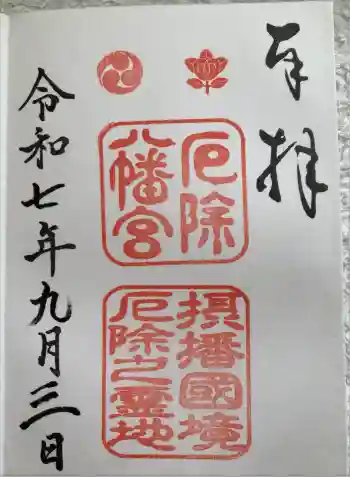 奉拝
厄除
八幡宮
摂播國境
厄除之霊地
令和七年九月三日